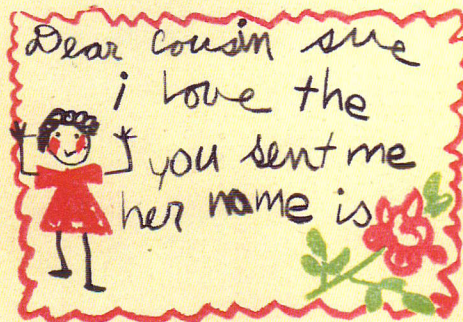 Dear cousin sue
i love the
you sent me
her name is